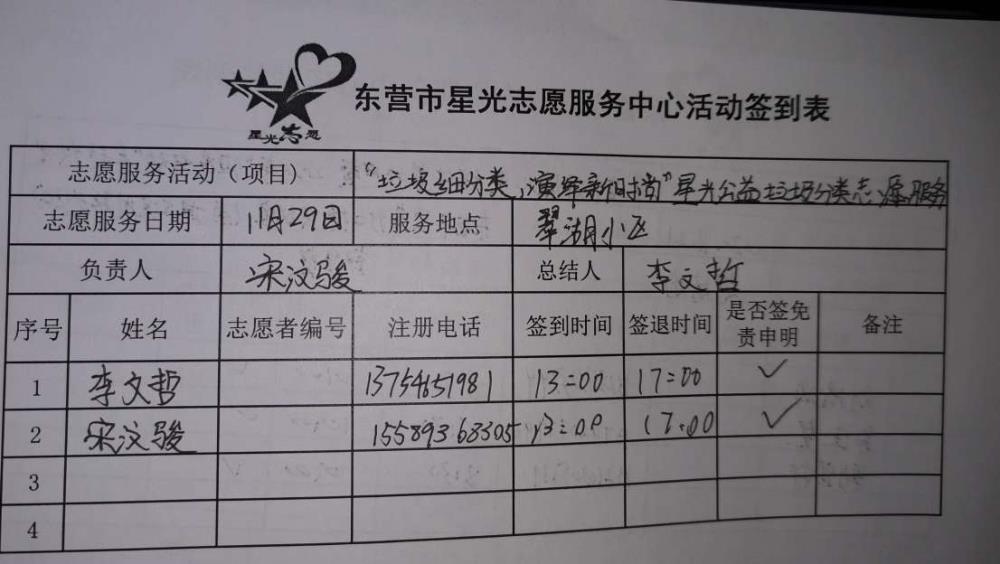 星光志愿
东营市星光志愿服务中心活动签到表
志愿服务活动（项目） “垃圾细分类，演绎新时尚”星光公益垃圾分类志愿服务
志愿服务日期 11月29日 服务地点 翠湖小区
负责人 宋汶骏 总结人 李文哲
序号 姓名 志愿者编号 注册电话 签到时间 签退时间 是否签免责申明 备注
1 李文哲 13754651981 13:00 17:00 ✓
2 宋汶骏 15589368305 13:00 17:00 ✓
3
4